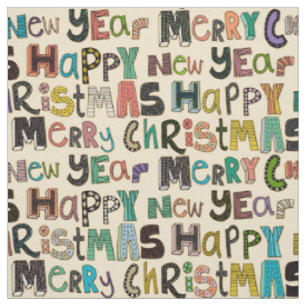 New Year Merry C
S HAPPY New Year
RiSTMAS HAPPY
Merry ChRiSTMAS
New Year Merry C
S HAPPY New Year
RiSTMAS HAPPY
Merry ChRiSTMAS